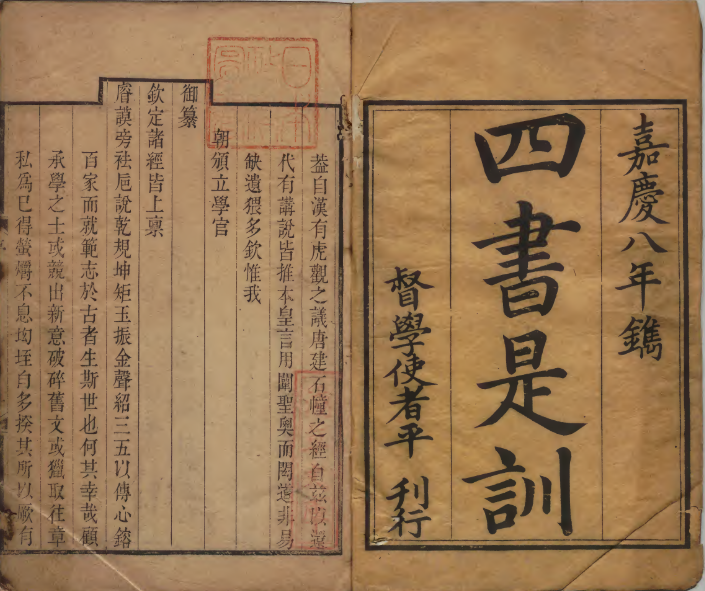 嘉慶八年鐫
四書是訓
督學使者平 刋行
葢自漢有虎觀之議唐建石幢之經自茲以還
代有講說皆推本皇言用闡聖奧而閎遠非易
缺遺猥多欽惟我
朝頒立學官
御纂
欽定諸經皆上稟
睿謨旁祛卮說乾規坤矩玉振金聲紹三五以傳心鎔
百家而就範志於古者生斯世也何其幸哉顧
承學之士或競出新意破碎舊文或獵取往章
私爲己得螢爝不息均堊白多揆其所以厥有